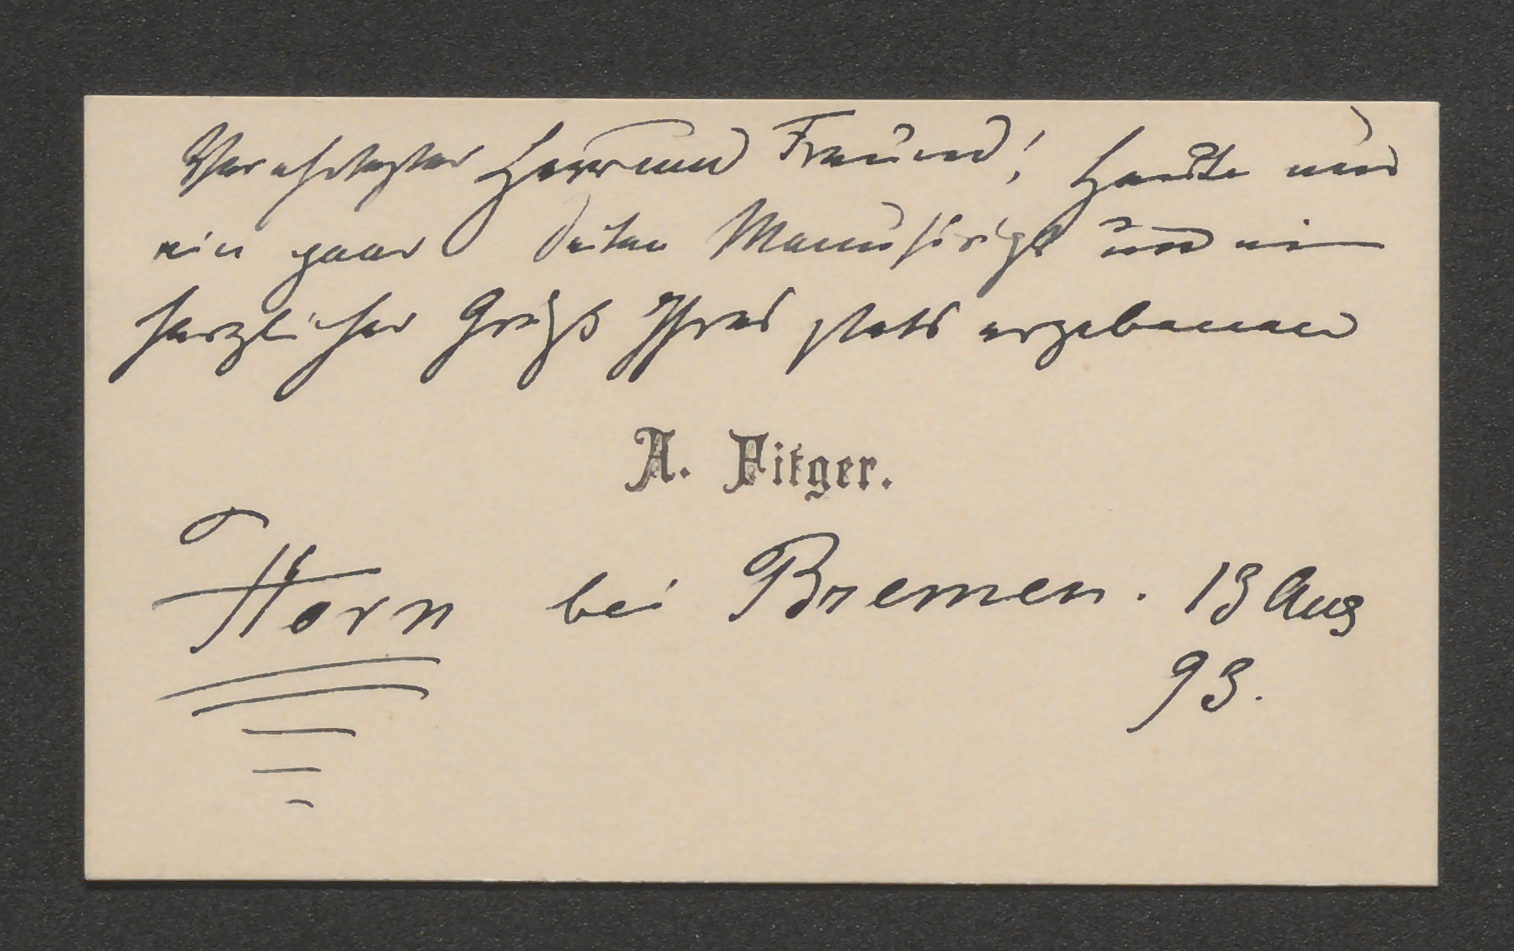 Verehrtester Herr und Freund! Heute nur
ein paar Seiten Manuskript und ein
herzlicher Gruß Ihres stets ergebenen
A. Fitger.
Horn bei Bremen. 13 Aug
93.